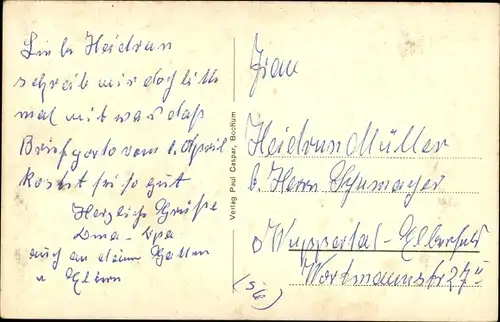 Liebe Heidrun
schreib mir doch bitte
mal mit was das
Briefporto vom 1. April
kostet sei so gut
Herzliche Grüße
Oma - Opa
auch an deinen Gatten
u Eltern
Verlag Paul Caspar, Bochum
Frau
Heidrun Müller
b. Herrn Schumacher
Wuppertal-Elberfeld
Wortmannstr 27 II
(56)